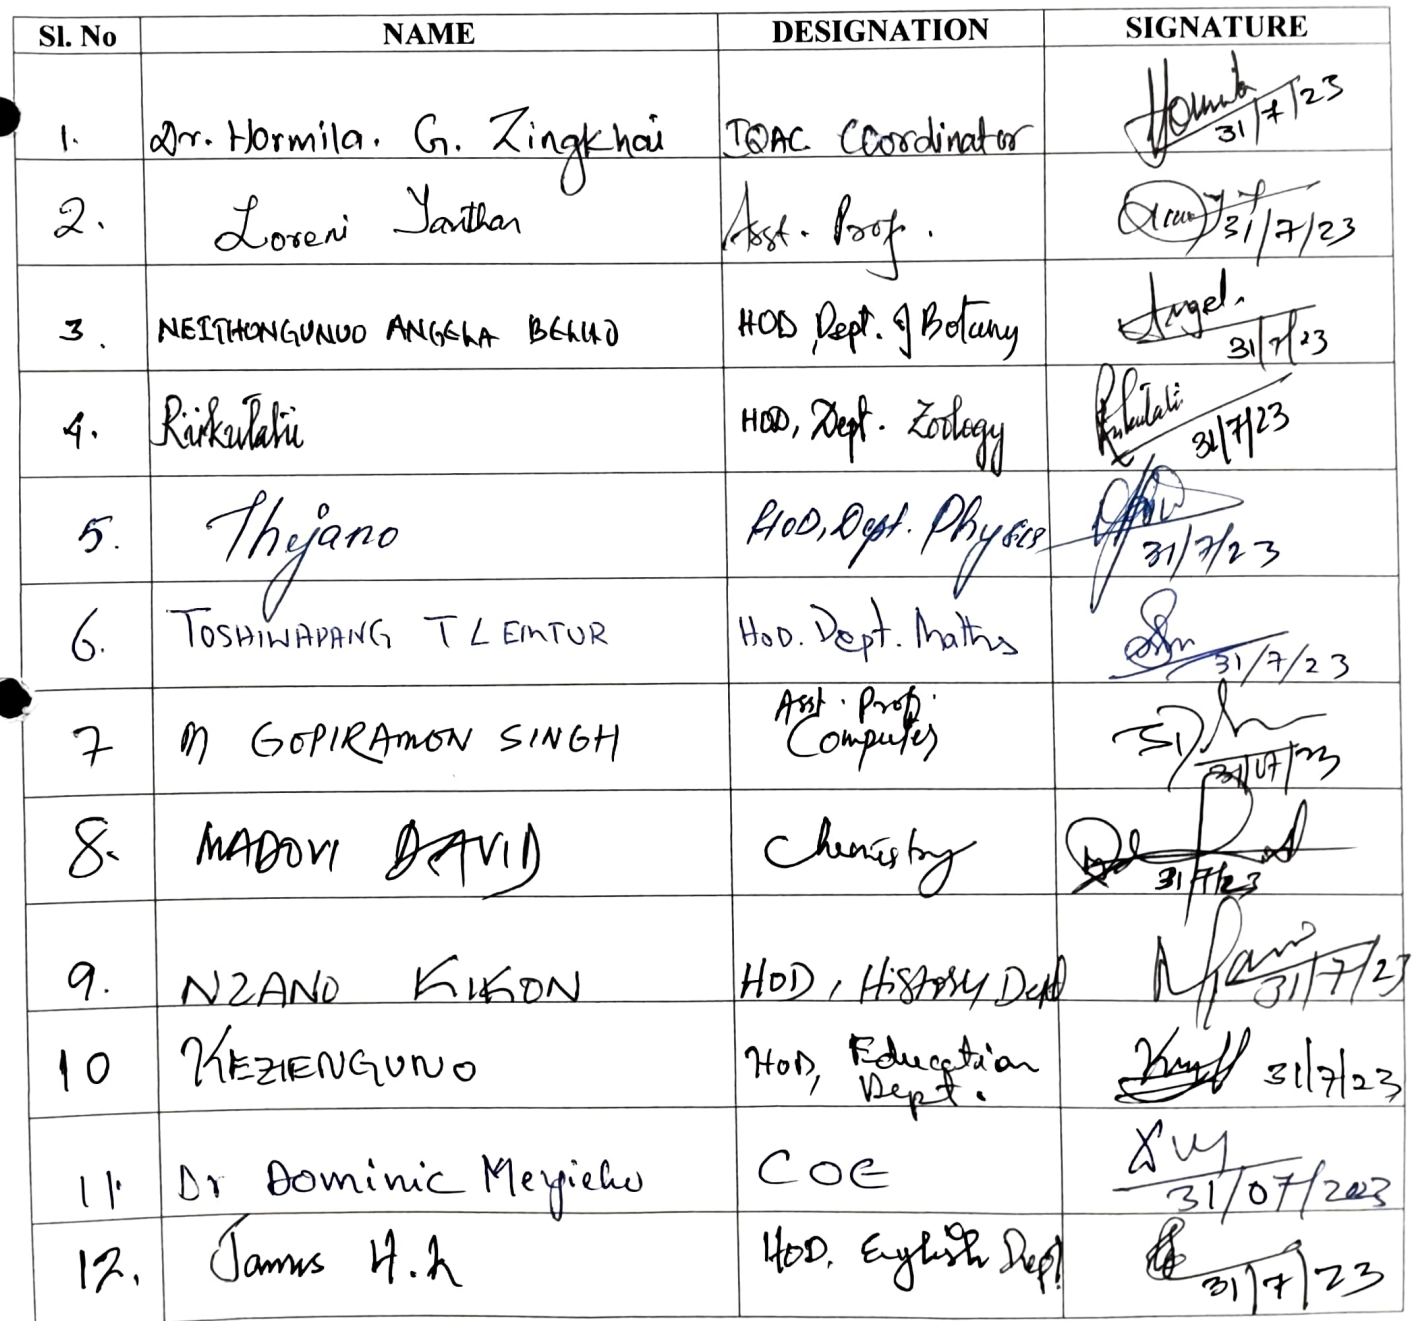 Sl. No NAME DESIGNATION SIGNATURE
1. Dr. Hormila. G. Zingkhai IQAC Coordinator Hormila 31/7/23
2. Loreni Yanthan Asst. Prof. 31/7/23
3. NEITHONGUNUO ANGELA BELHO HOD, Dept. of Botany Angel. 31/7/23
4. Rükulatü HOD, Dept. Zoology Rukulatü 31/7/23
5. Thejano HOD, Dept. Physics 31/7/23
6. TOSHIWAPANG T LEMTUR HOD. Dept. Maths 31/7/23
7 M GOPIRAMON SINGH Asst. Prof.
Computer 31/07/23
8. MADOVI DAVID Chemistry 31/7/23
9. NZANO KIKON HOD, History Dept 31/7/23
10 KEZIENGUNO HOD, Education
Dept. 31/7/23
11. Dr Dominic Meyieho COE 31/07/2023
12. James H.K HOD. English Dept 31/7/23